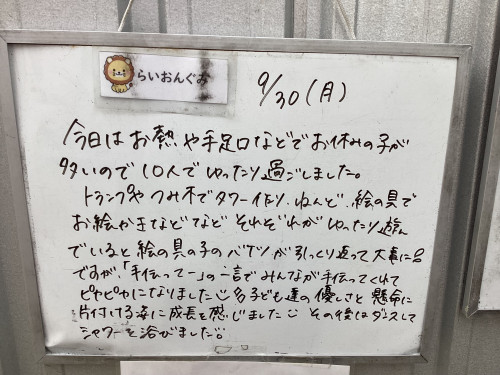 らいおんぐみ
9/30(月)
今日はお熱や手足口などでお休みの子が
多いので10人でゆったり過ごしました。
トランプやつみ木でタワー作り、ねんど、絵の具で
お絵かきなどなどそれぞれがゆったり遊ん
でいると絵の具の子のバケツが引っくり返って大事に
ですが、「手伝ってー」の一言でみんなが手伝ってくれて
ピカピカになりました 子ども達の優しさと懸命に
片付ける姿に成長を感じました その後はダンスして
シャワーを浴びました